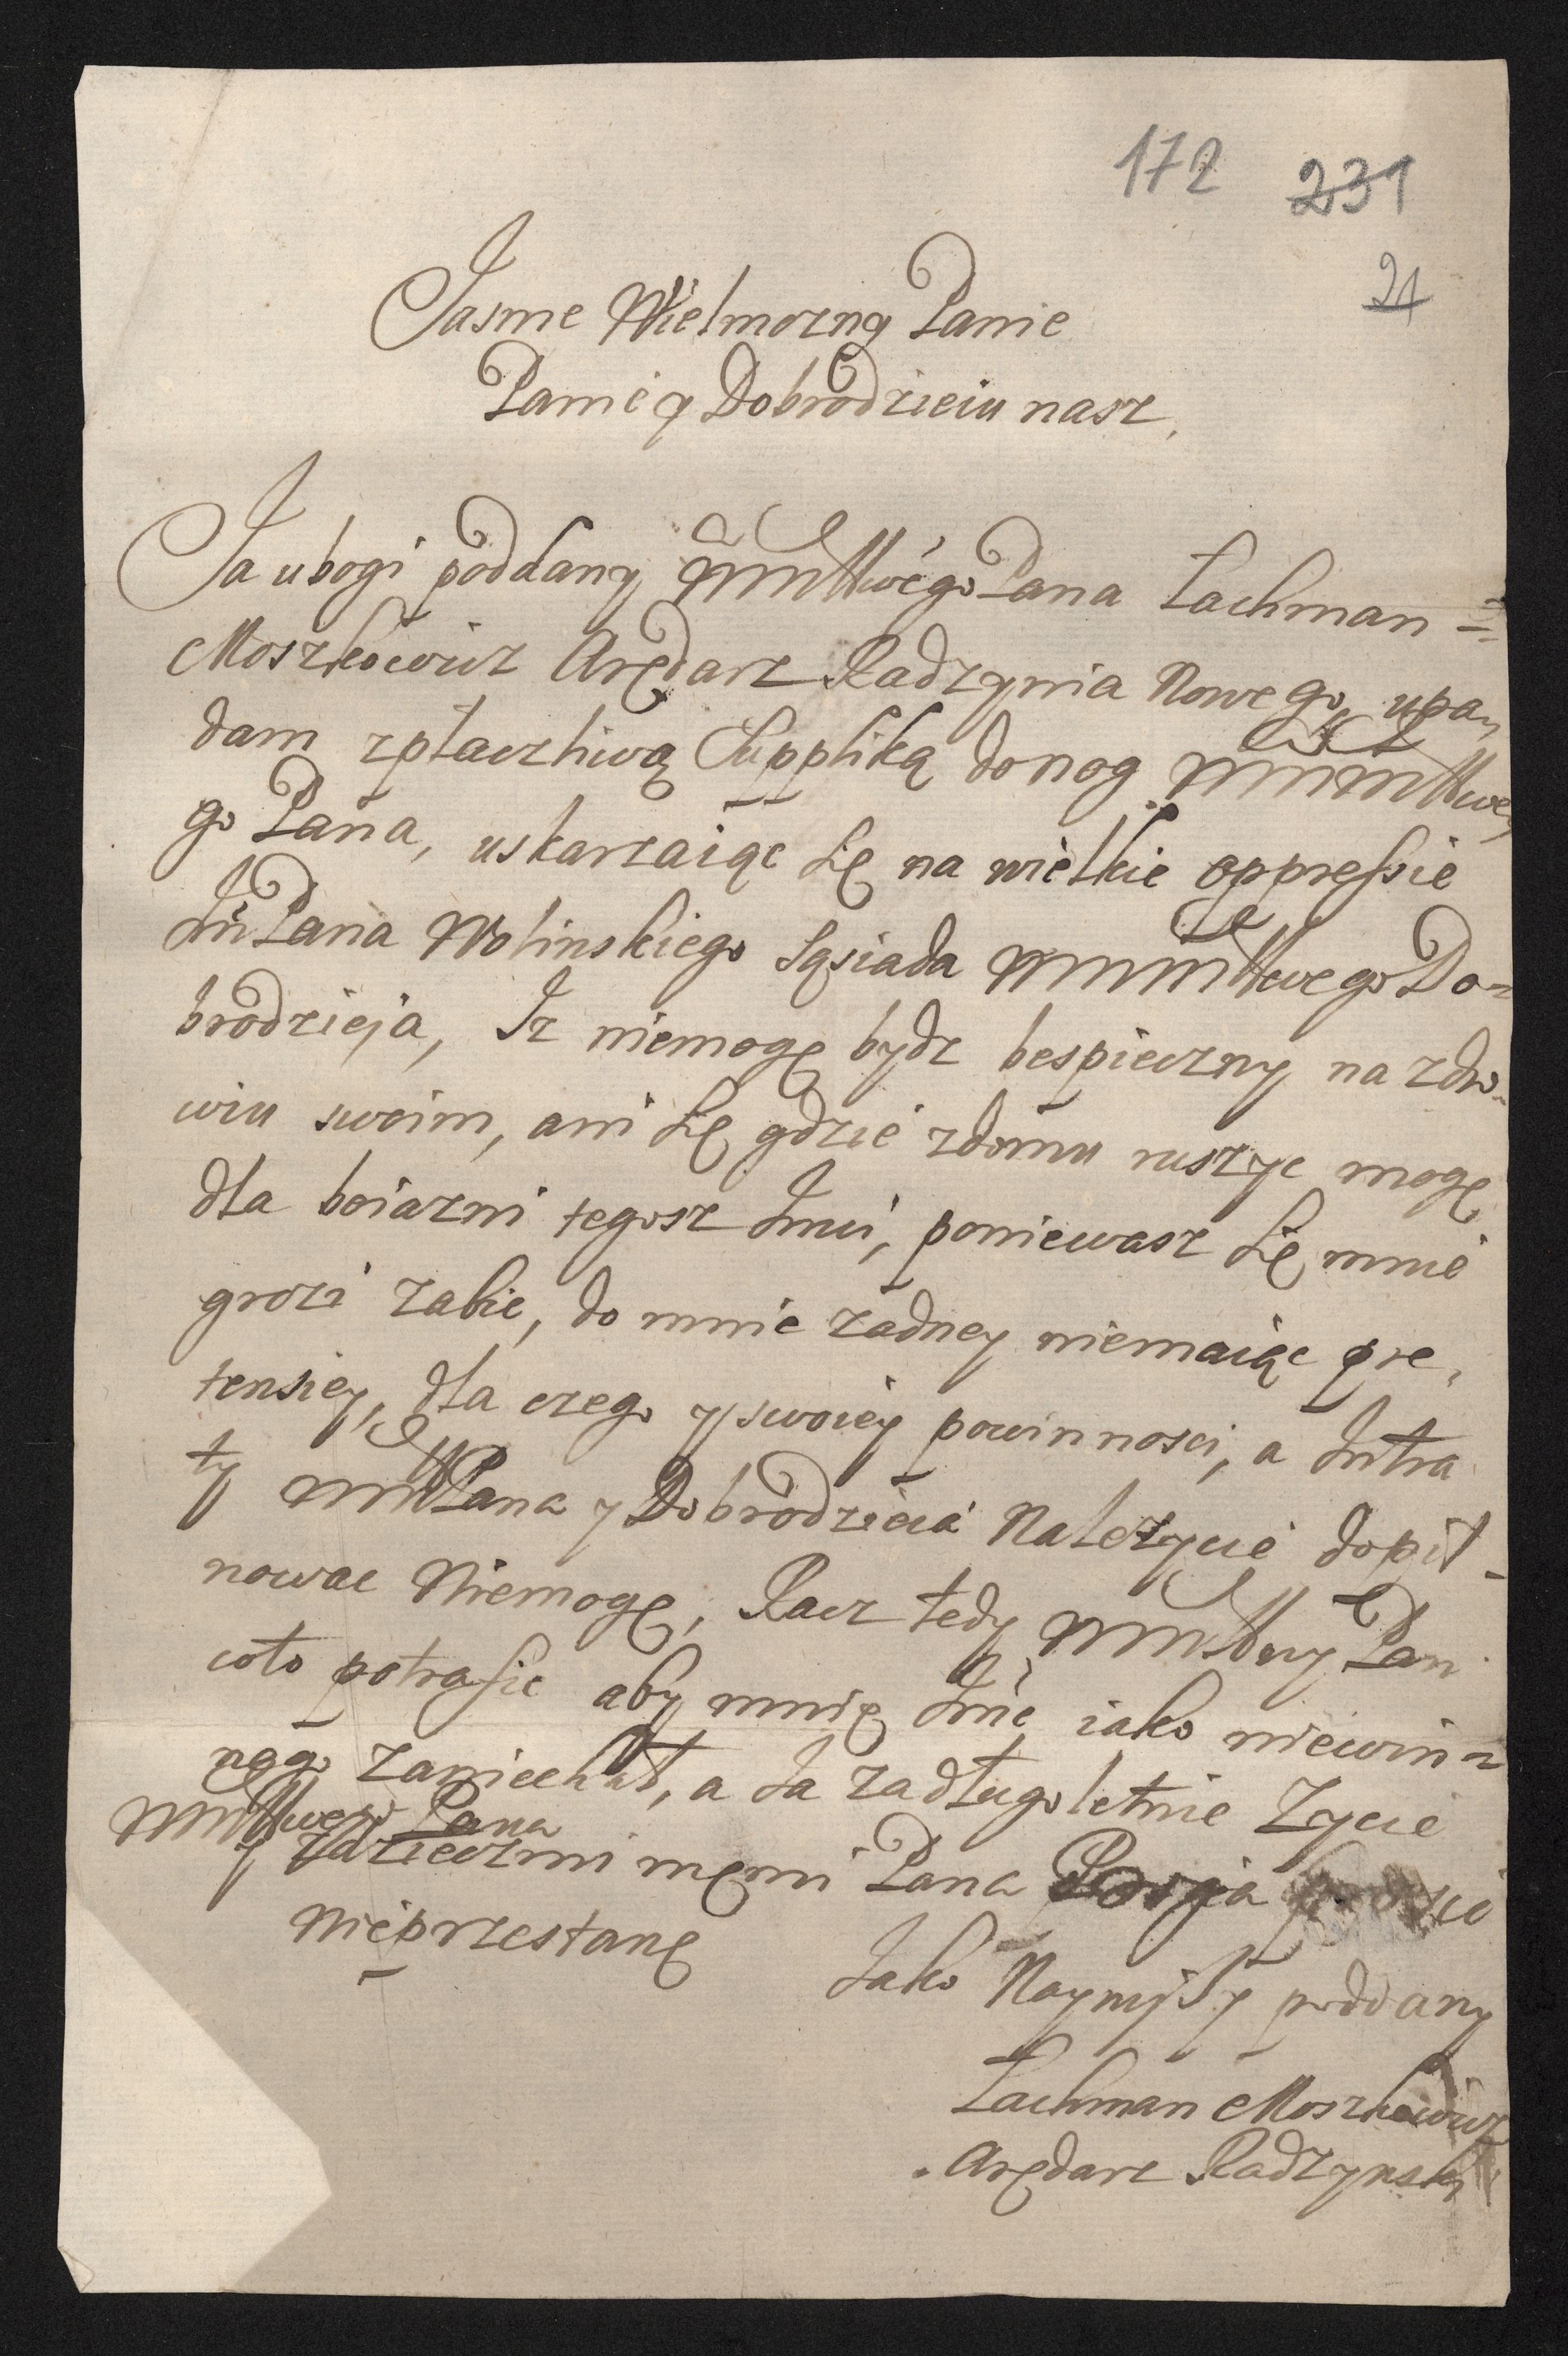 172 231
21
Jasnie Wielmozny Panie
Panie y Dobrodzieiu nasz,
Ja ubogi poddany WMMMwego Pana Lachman =
Moszkowicz Arędarz Radzynia Nowego, upa,
dam zpłaczliwą Suppliką do nog WMMMwe,
go Pana, uskarzaiąc się na wielkie oppressie
Jm Pana Wolinskiego Sąsiada WMMMwego Do=
brodzieja, Iz niemogę bydz bespieczny na zdro-
wiu swoim, ani się gdzie zdomu ruszyc mogę
dla boiazni tegosz Jmci, poniewasz się mnie
grozi zabic, do mnie zadney niemaiąc pre,
tensiey, dla czego y swoiey powinnosci, a Intra
ty WMMPana y Dobrodzieia Nalezycie dopil-
nowac Niemogę, Racz tedy WMMwy Pan
wto potrafic aby mnie Jmc iako niewin=
nego zaniechał, a Ja zadługoletnie Zycie
WMMwego Pana
y zdzieczmi memi Pana Boga
Nieprzestanę
Jako Naynizszy poddany
Lachman Moszkowicz
Arędarz Radzynsky